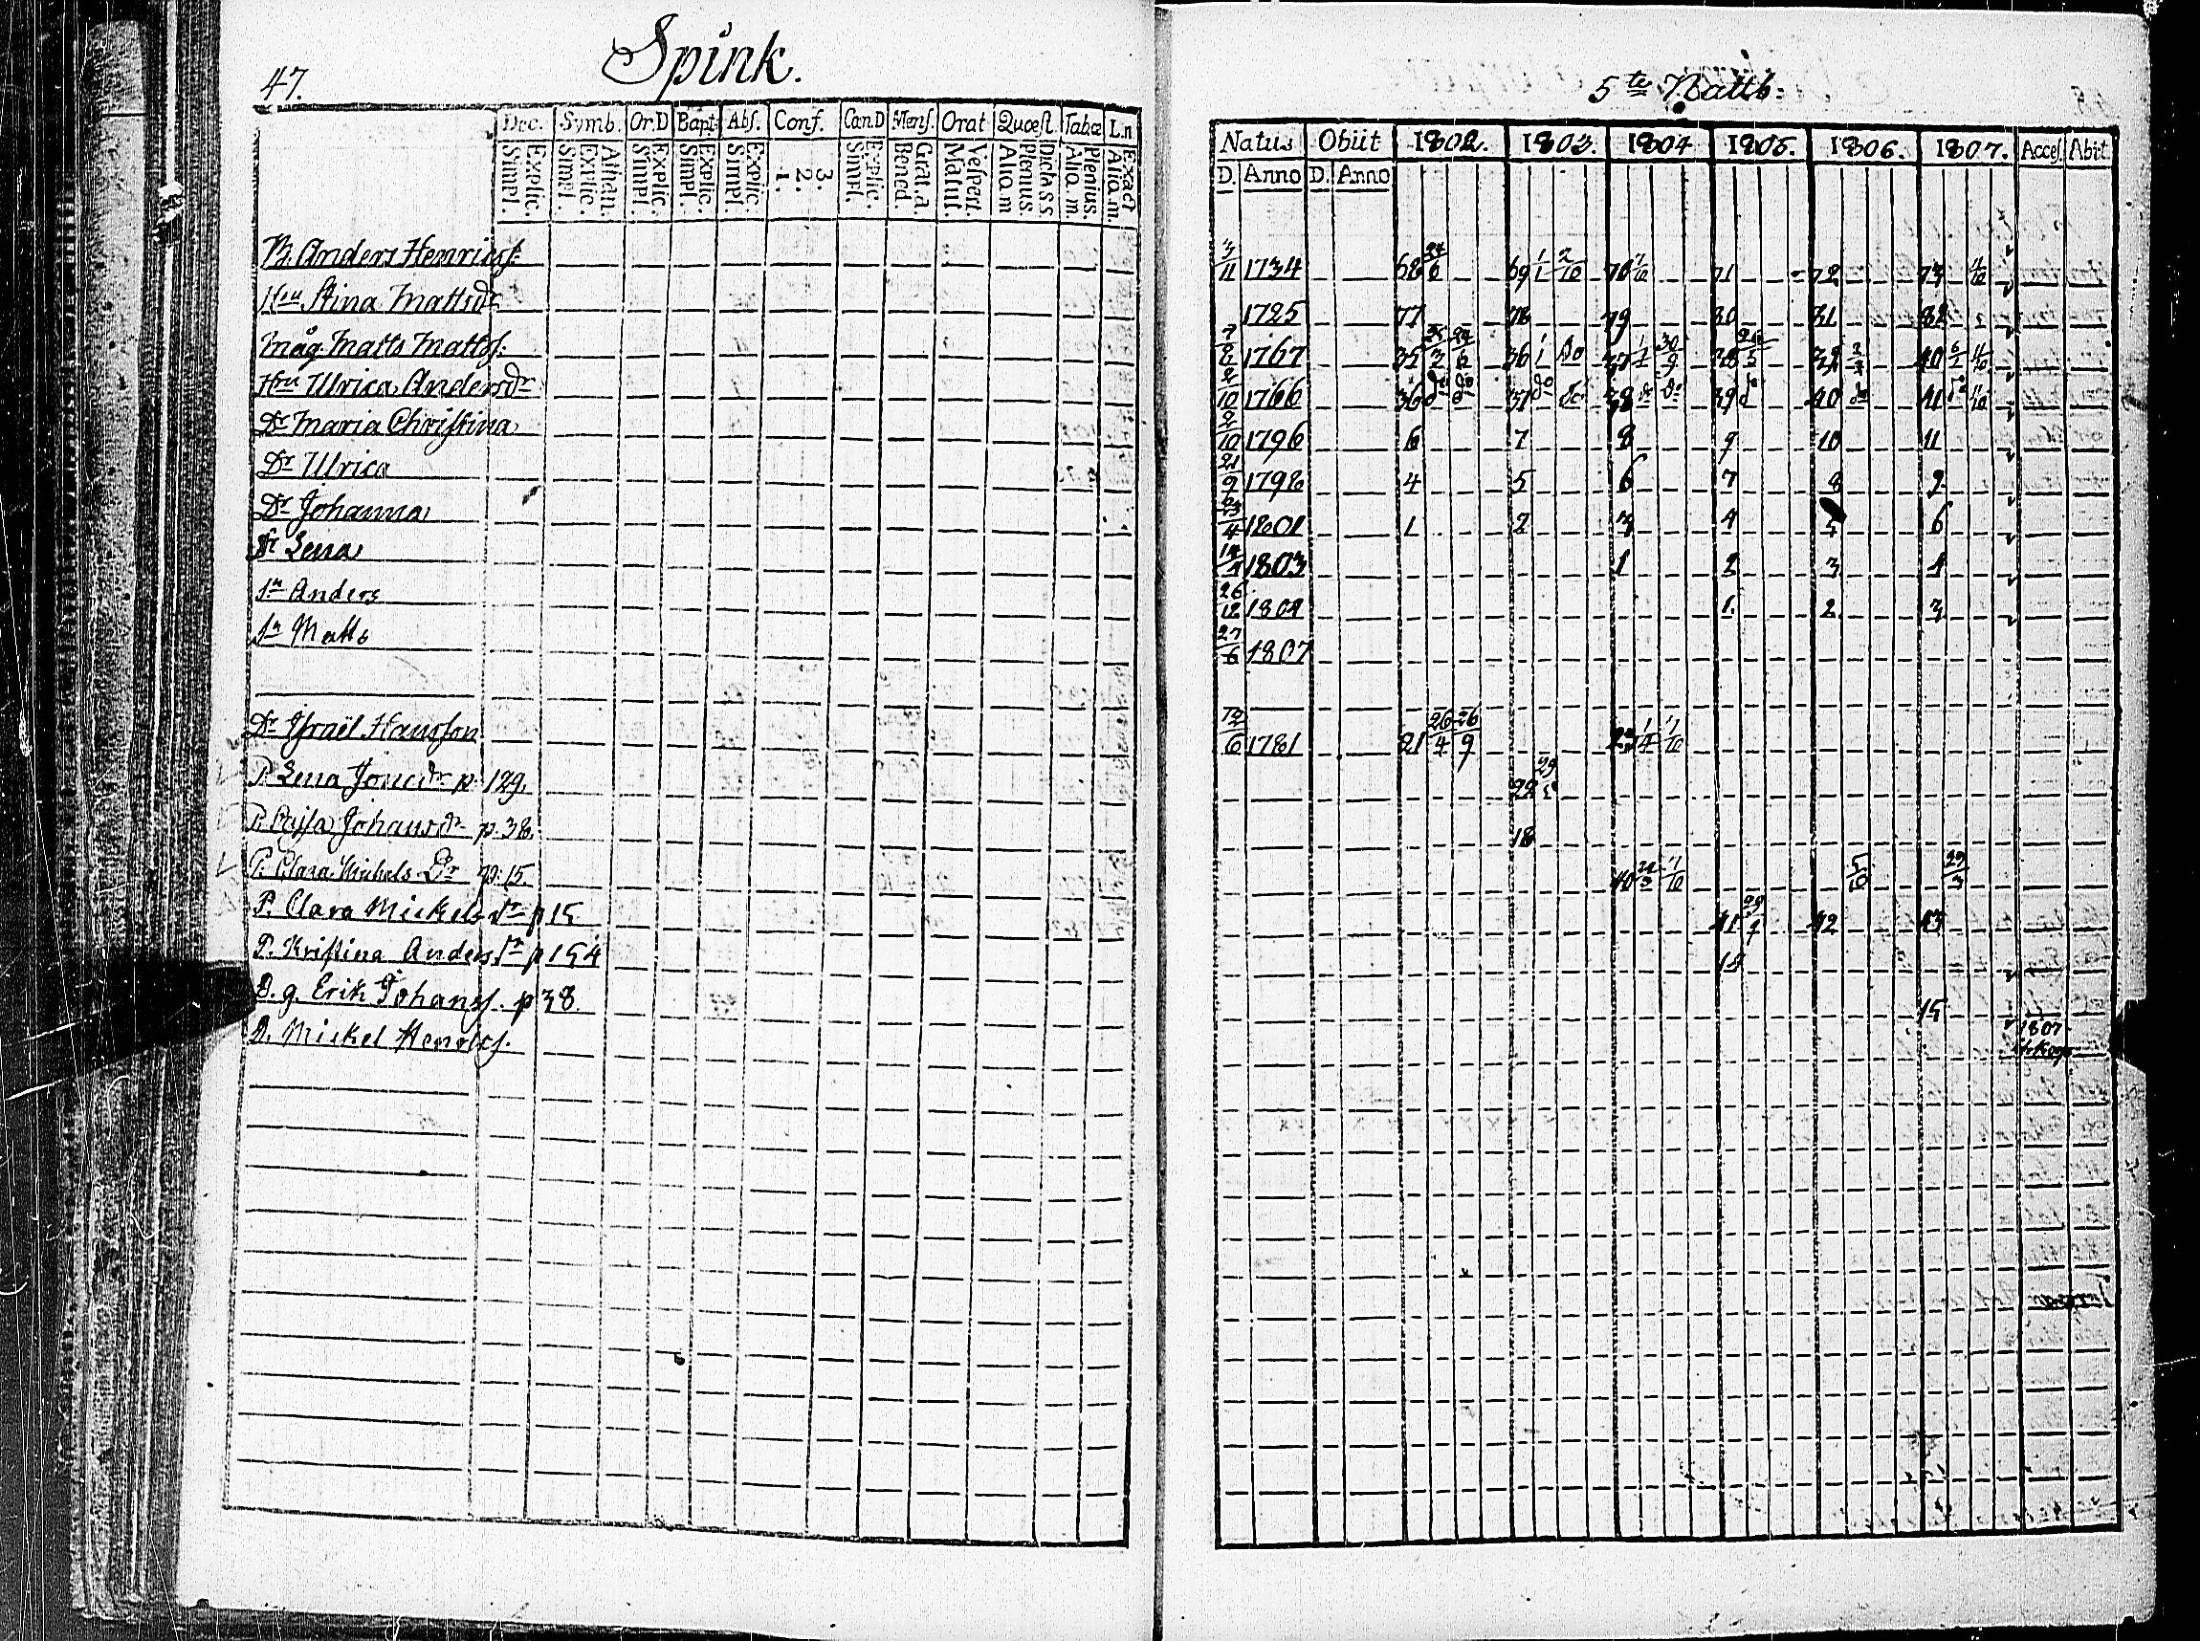 47.
Spink.
Dec. Symb. Or.D Bapt. Abs. Conf. Can.D Mens. Orat Quæst. Tabæ L.n
Simpl. Explic. Simpl. Explic. Athan. Simpl. Explic. Simpl. Explic. Simpl. Explic. 1. 2. 3. Simpl. Explic. Bened. Grat.a. Matut. Vespert. Aliq.m Plenius. Dicta SS Aliq.m. Plenius. Aliq.m. Exact
B. Anders Henricss.
Hru Stina Mattsdr
Måg Matts Mattss.
Hru Ulrica Andersdr
Dr Maria Christina
Dr Ulrica
Dr Johanna
Dr Lena
Sn Anders
Sn Matts
Dr Israël Hansson
P. Lena Jonsdr p. 129.
P. Cajsa Johansdr p. 38.
P. Clara Michels Dr p. 15.
P. Clara Mickelsdr p 15
P. Kristina Anders dr p 154
D. g. Erik Johanss. p 38.
D. Mickel Henrics.
5te Mattb:
Natus Obiit 1802. 1803. 1804 1805. 1806. 1807. Acces. Abit
D. Anno D. Anno
3/11 1734 68 69 1/1 2/10 70 71 72 73 4/10
1725 77 78 79 80 81 82
1767 35 36 1/1 do 37 30/9 38 39 40 4/10
2/10 1766 36 do do 37 do do 38 do do 39 do 40 do 41 do 4/10
2/10 1796 6 7 8 9 10 11
21/9 1798 4 5 6 7 8 9
23/4 1801 1 2 3 4 5 6
1803 1 2 3 4
26/12 1804 1. 2 3
27/6 1807
12/6 1781 21 26/4 26/9 23 1/4 7/10
22
18
40 7/10 5/10 29/3
41 42 43
14
15
1807